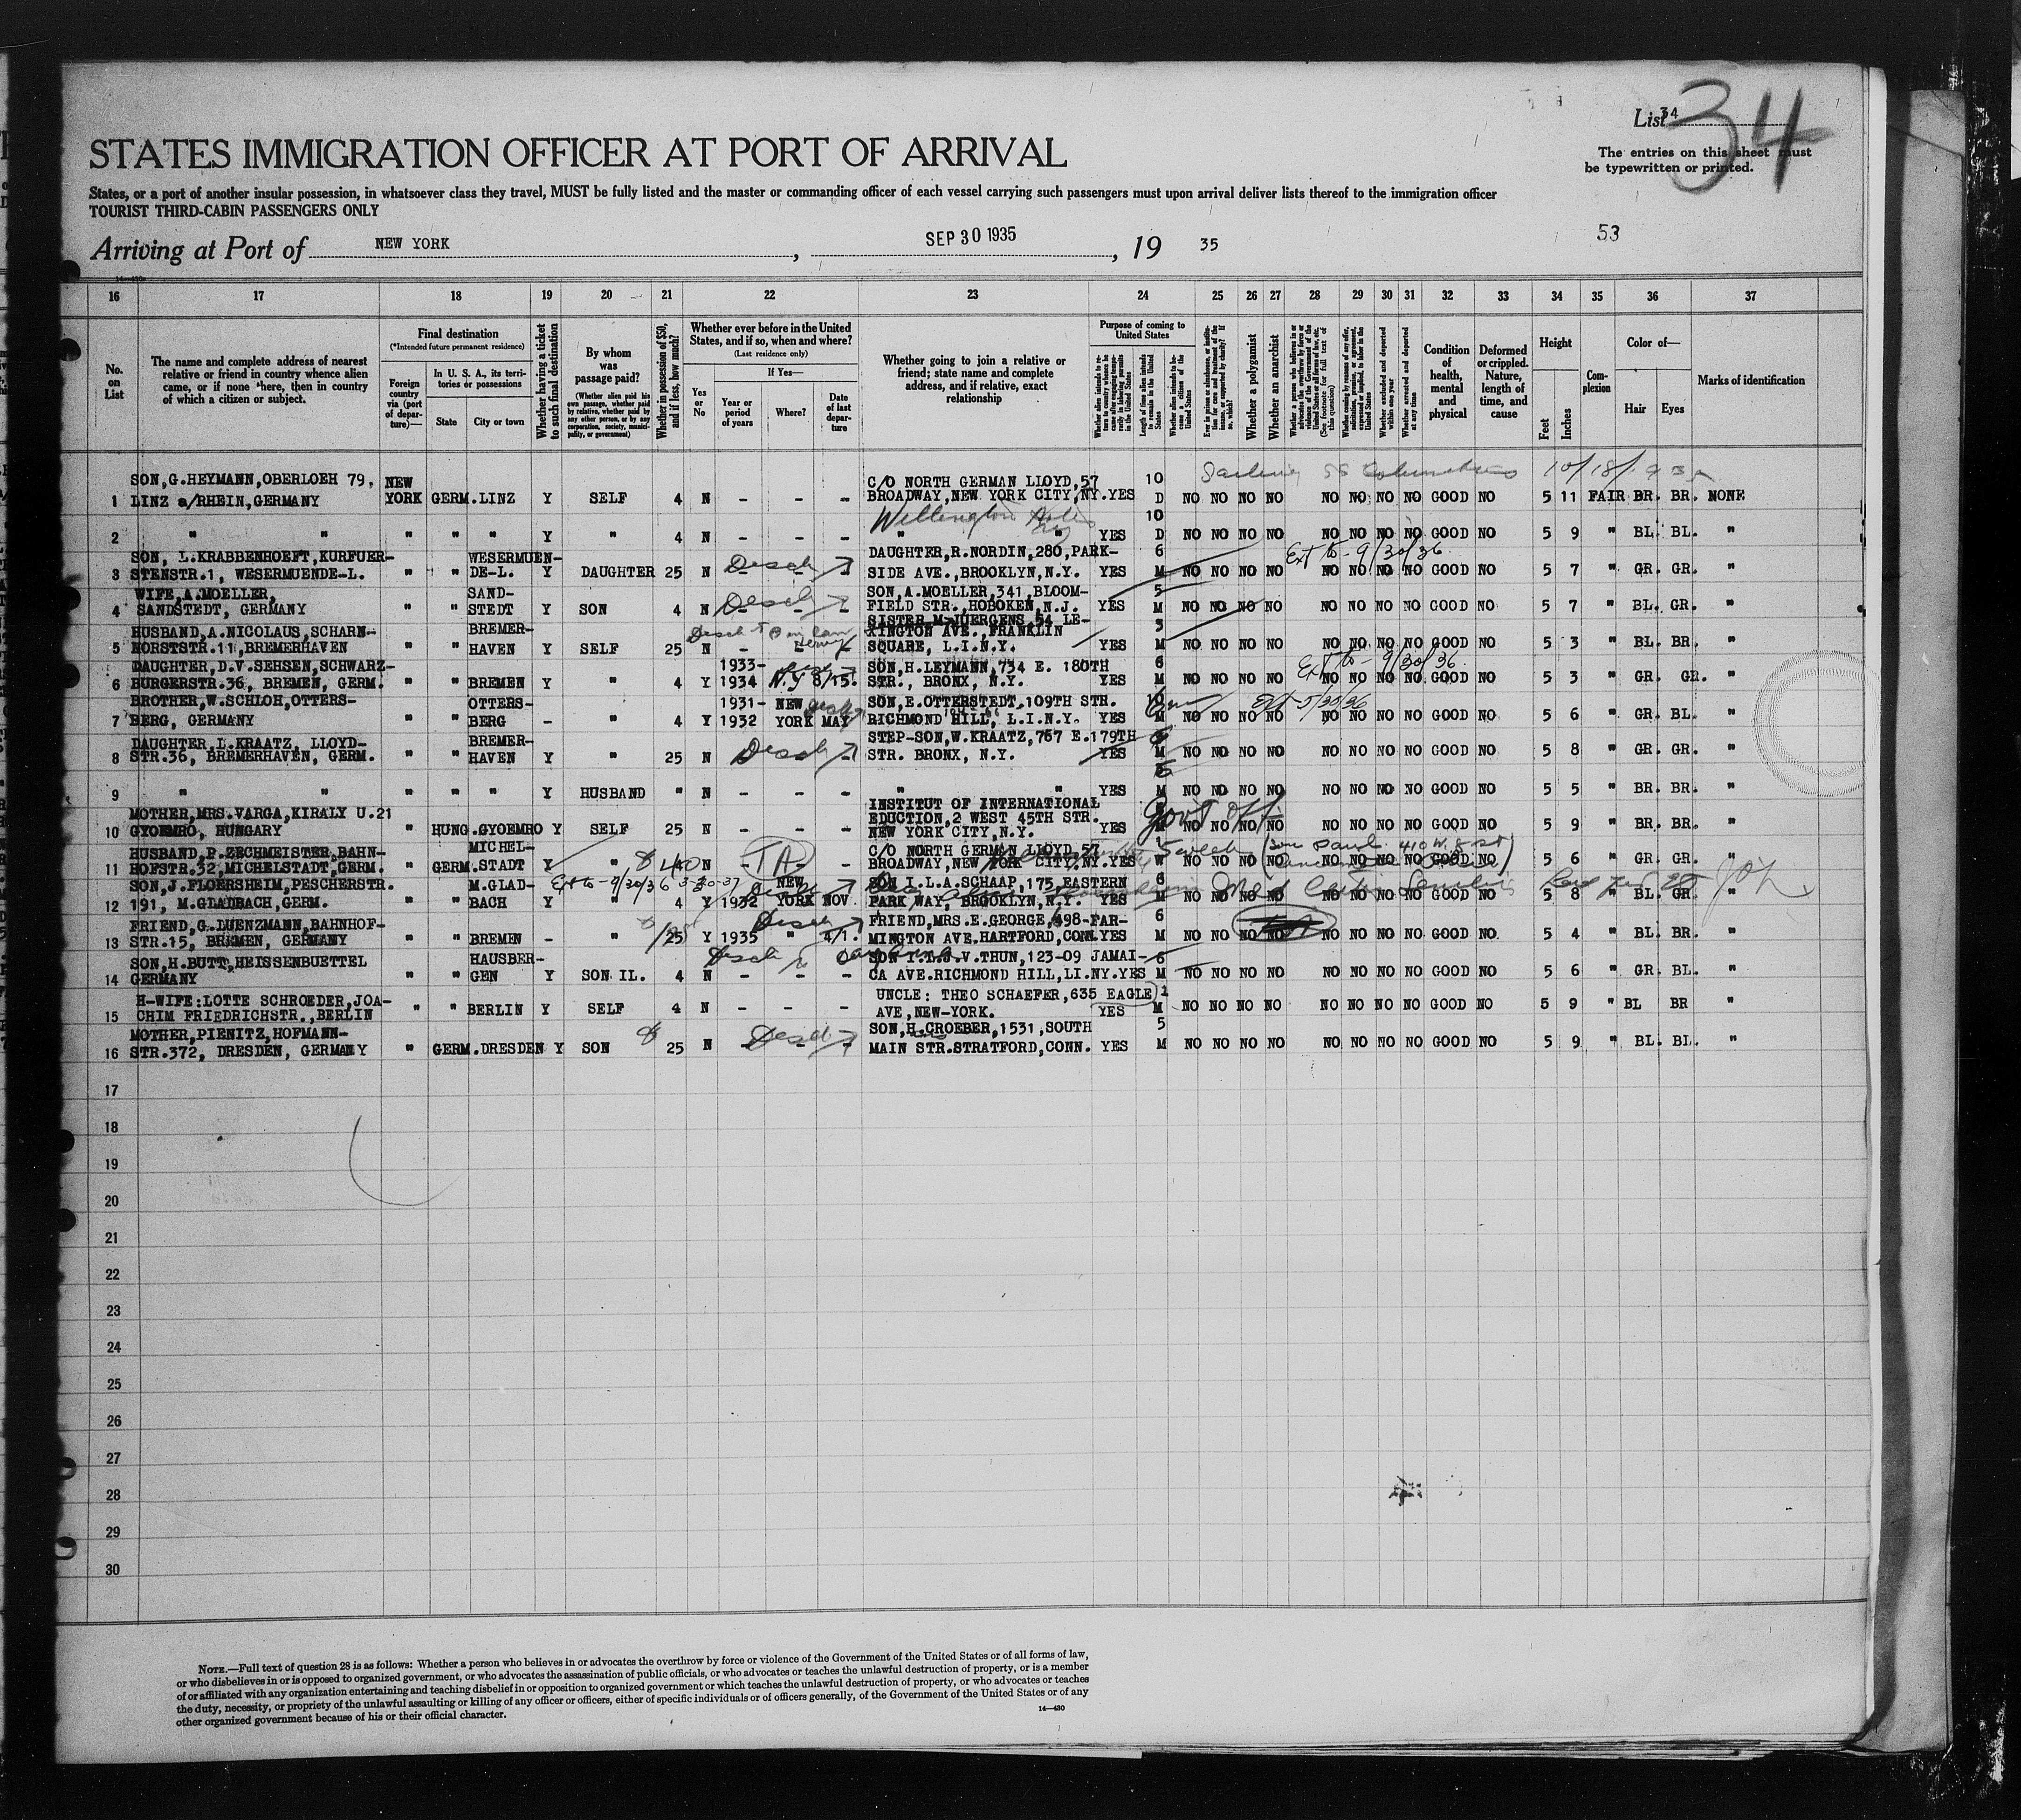 34
List 34
The entries on this sheet must
be typewritten or printed.
STATES IMMIGRATION OFFICER AT PORT OF ARRIVAL
States, or a port of another insular possession, in whatsoever class they travel, MUST be fully listed and the master or commanding officer of each vessel carrying such passengers must upon arrival deliver lists thereof to the immigration officer
TOURIST THIRD-CABIN PASSENGERS ONLY
Arriving at Port of NEW YORK, SEP 30 1935, 19 35
53
16 17 18 19 20 21 22 23 24 25 26 27 28 29 30 31 32 33 34 35 36 37
No. on List
The name and complete address of nearest relative or friend in country whence alien came, or if none there, then in country of which a citizen or subject.
Final destination
(*Intended future permanent residence)
Foreign country via (port of departure)—
In U. S. A., its territories or possessions
State
City or town
Whether having a ticket to such final destination
By whom was passage paid?
(Whether alien paid his own passage, whether paid by relative, whether paid by any other person, or by any corporation, society, municipality, or government)
Whether in possession of $50, and if less, how much?
Whether ever before in the United States, and if so, when and where?
(Last residence only)
Yes or No
If Yes—
Year or period of years
Where?
Date of last departure
Whether going to join a relative or friend; state name and complete address, and if relative, exact relationship
Purpose of coming to United States
Length of time alien intends to remain in the United States
Whether alien intends to become a citizen of the United States
Whether a polygamist
Whether an anarchist
Whether excluded and deported within one year
Whether arrested and deported at any time
Condition of health, mental and physical
Deformed or crippled. Nature, length of time, and cause
Height
Feet
Inches
Complexion
Color of—
Hair
Eyes
Marks of identification
SON,G.HEYMANN,OBERLOEH 79, NEW C/O NORTH GERMAN LLOYD,57 10 10/18/1935
1 LINZ a/RHEIN,GERMANY YORK GERM.LINZ Y SELF 4 N - - - BROADWAY,NEW YORK CITY,NY.YES D NO NO NO NO NO NO NO NO GOOD NO 5 11 FAIR BR. BR. NONE
Wellington 10
2 " " " " " Y " 4 N - - - " " YES D NO NO NO NO NO NO NO NO GOOD NO 5 9 " BL. BL. "
SON, L.KRABBENHOEFT,KURFUER- WESERMUEN- DAUGHTER,R.NORDIN,280,PARK- 6 Ext to - 9/30/36
3 STENSTR.1, WESERMUENDE-L. " " DE-L. Y DAUGHTER 25 N Desch - SIDE AVE.,BROOKLYN,N.Y. YES M NO NO NO NO NO NO NO NO GOOD NO 5 7 " GR. GR. "
WIFE,A.MOELLER, SAND- SON,A.MOELLER,341,BLOOM- 5
4 SANDSTEDT, GERMANY " " STEDT Y SON 4 N Desch - FIELD STR.,HOBOKEN,N.J. YES M NO NO NO NO NO NO NO NO GOOD NO 5 7 " BL. GR. "
HUSBAND,A.NICOLAUS,SCHARN- BREMER- Desch SISTER M.JUERGENS,54 LE- 3
5 HORSTSTR.11,BREMERHAVEN " " HAVEN Y SELF 25 N - - XINGTON AVE.,FRANKLIN
SQUARE, L.I.N.Y. YES M NO NO NO NO NO NO NO NO GOOD NO 5 3 " BL. BR. "
DAUGHTER,D.V.SEHSEN,SCHWARZ- 1933- SON,H.LEYMANN,734 E. 180TH 6 Ext to - 9/30/36
6 BURGERSTR.36, BREMEN, GERM. " " BREMEN Y " 4 Y 1934 N.Y 8/15. STR., BRONX, N.Y. YES M NO NO NO NO NO NO NO NO GOOD NO 5 3 " GR. GR. "
BROTHER,W.SCHLOH,OTTERS- OTTERS- 1931- NEW SON,E.OTTERSTEDT,109TH STR. Ext - 5/30/36
7 BERG, GERMANY " " BERG - " 4 Y 1932 YORK MAY RICHMOND HILL, L.I.N.Y. YES M NO NO NO NO NO NO NO NO GOOD NO 5 6 " GR. BL. "
DAUGHTER,L.KRAATZ, LLOYD- BREMER- STEP-SON,W.KRAATZ,767 E.179TH 6
8 STR.36, BREMERHAVEN, GERM. " " HAVEN Y " 25 N Desch - STR. BRONX, N.Y. YES M NO NO NO NO NO NO NO NO GOOD NO 5 8 " GR. GR. "
6
9 " " " " " Y HUSBAND " N - - - " " YES M NO NO NO NO NO NO NO NO GOOD NO 5 5 " BR. BR. "
MOTHER,MRS.VARGA,KIRALY U.21 INSTITUT OF INTERNATIONAL Govt Off
10 GYOEMRO, HUNGARY " HUNG.GYOEMRO Y SELF 25 N - - - EDUCTION,2 WEST 45TH STR.
NEW YORK CITY,N.Y. YES NO NO NO NO NO NO NO NO GOOD NO 5 9 " BR. BR. "
HUSBAND,P.ZECHMEISTER,BAHN- MICHEL- C/O NORTH GERMAN LLOYD,57 (son Paul 410 W. 8 st)
11 HOFSTR.32,MICHELSTADT,GERM. " GERM.STADT Y " $40 N (TA) - BROADWAY,NEW YORK CITY,NY.YES W NO NO NO NO NO NO NO NO GOOD NO 5 6 " GR. GR. "
SON,J.FLOERSHEIM,PESCHERSTR. M.GLAD- Ext to - 9/30/36 3-30-37 NEW SON I.L.A.SCHAAP,175 EASTERN 6
12 191, M.GLADBACH,GERM. " " BACH Y " 4 Y 1932 YORK NOV PARK WAY, BROOKLYN,N.Y. YES M NO NO NO NO NO NO NO NO GOOD NO 5 8 " BL. GR. "
FRIEND,G.DUENZMANN,BAHNHOF- Desch FRIEND,MRS.E.GEORGE,498-FAR- 6
13 STR.15, BREMEN, GERMANY " " BREMEN - " 25 Y 1935 " 4/1. MINGTON AVE.HARTFORD,CONN.YES M NO NO NO NO NO NO NO NO GOOD NO. 5 4 " BL. BR. "
SON,H.BUTT,HEISSENBUETTEL HAUSBER- Desch SON I.L.H.V.THUN,123-09 JAMAI- 6
14 GERMANY " " GEN Y SON IL. 4 N - - - CA AVE.RICHMOND HILL,LI.NY.YES M NO NO NO NO NO NO NO NO GOOD NO 5 6 " GR. BL. "
H-WIFE:LOTTE SCHROEDER,JOA- UNCLE: THEO SCHAEFER,635 EAGLE 1
15 CHIM FRIEDRICHSTR.,BERLIN " " BERLIN Y SELF 4 N - - - AVE,NEW-YORK. YES M NO NO NO NO NO NO NO NO GOOD NO 5 9 " BL BR "
MOTHER,PIENITZ,HOFMANN- SON,H.CROEBER,1531,SOUTH 5
16 STR.372, DRESDEN, GERMANY " GERM.DRESDEN Y SON 25 N Desch - MAIN STR.STRATFORD,CONN. YES M NO NO NO NO NO NO NO NO GOOD NO 5 9 " BL. BL. "
17
18
19
20
21
22
23
24
25
26
27
28
29
30
NOTE.—Full text of question 28 is as follows: Whether a person who believes in or advocates the overthrow by force or violence of the Government of the United States or of all forms of law,
or who disbelieves in or is opposed to organized government, or who advocates the assassination of public officials, or who advocates or teaches the unlawful destruction of property, or is a member
of or affiliated with any organization entertaining and teaching disbelief in or opposition to organized government or which teaches the unlawful destruction of property, or who advocates or teaches
the duty, necessity, or propriety of the unlawful assaulting or killing of any officer or officers, either of specific individuals or of officers generally, of the Government of the United States or of any
other organized government because of his or their official character.
14—430